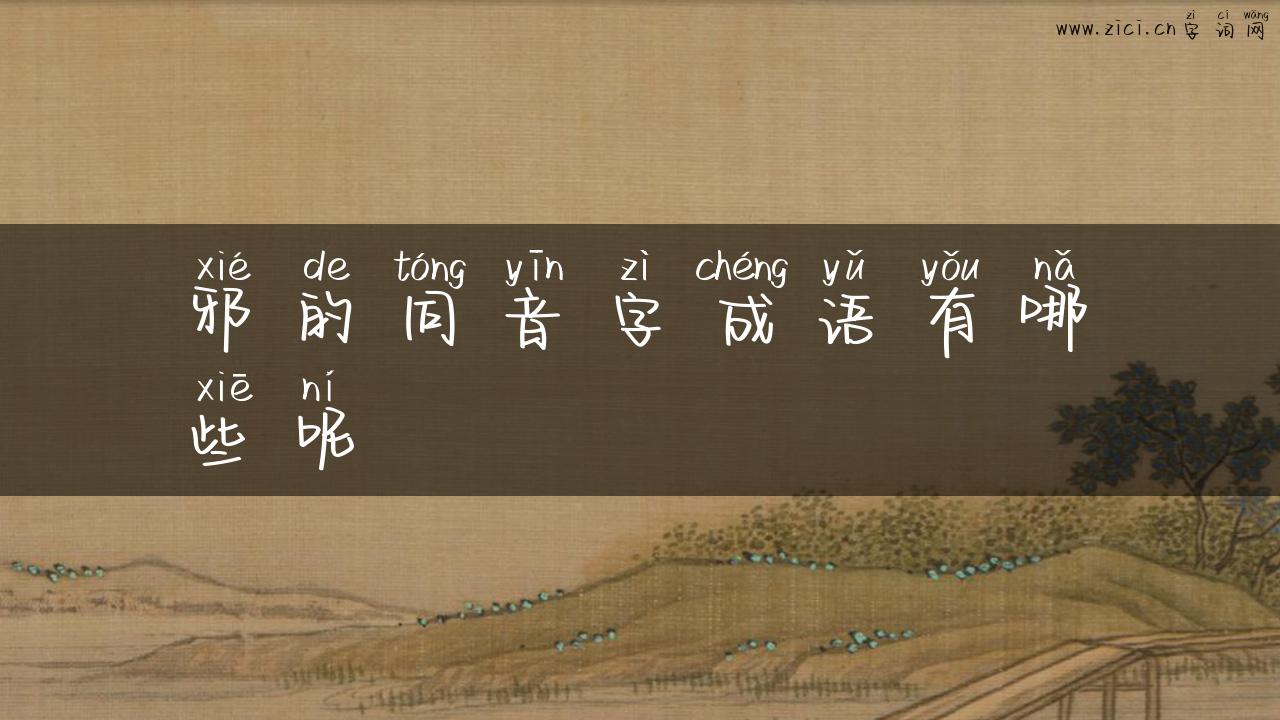 zì cí wǎng
www.zici.cn字词网
xié de tóng yīn zì chéng yǔ yǒu nǎ
邪的同音字成语有哪
xiē ní
些呢